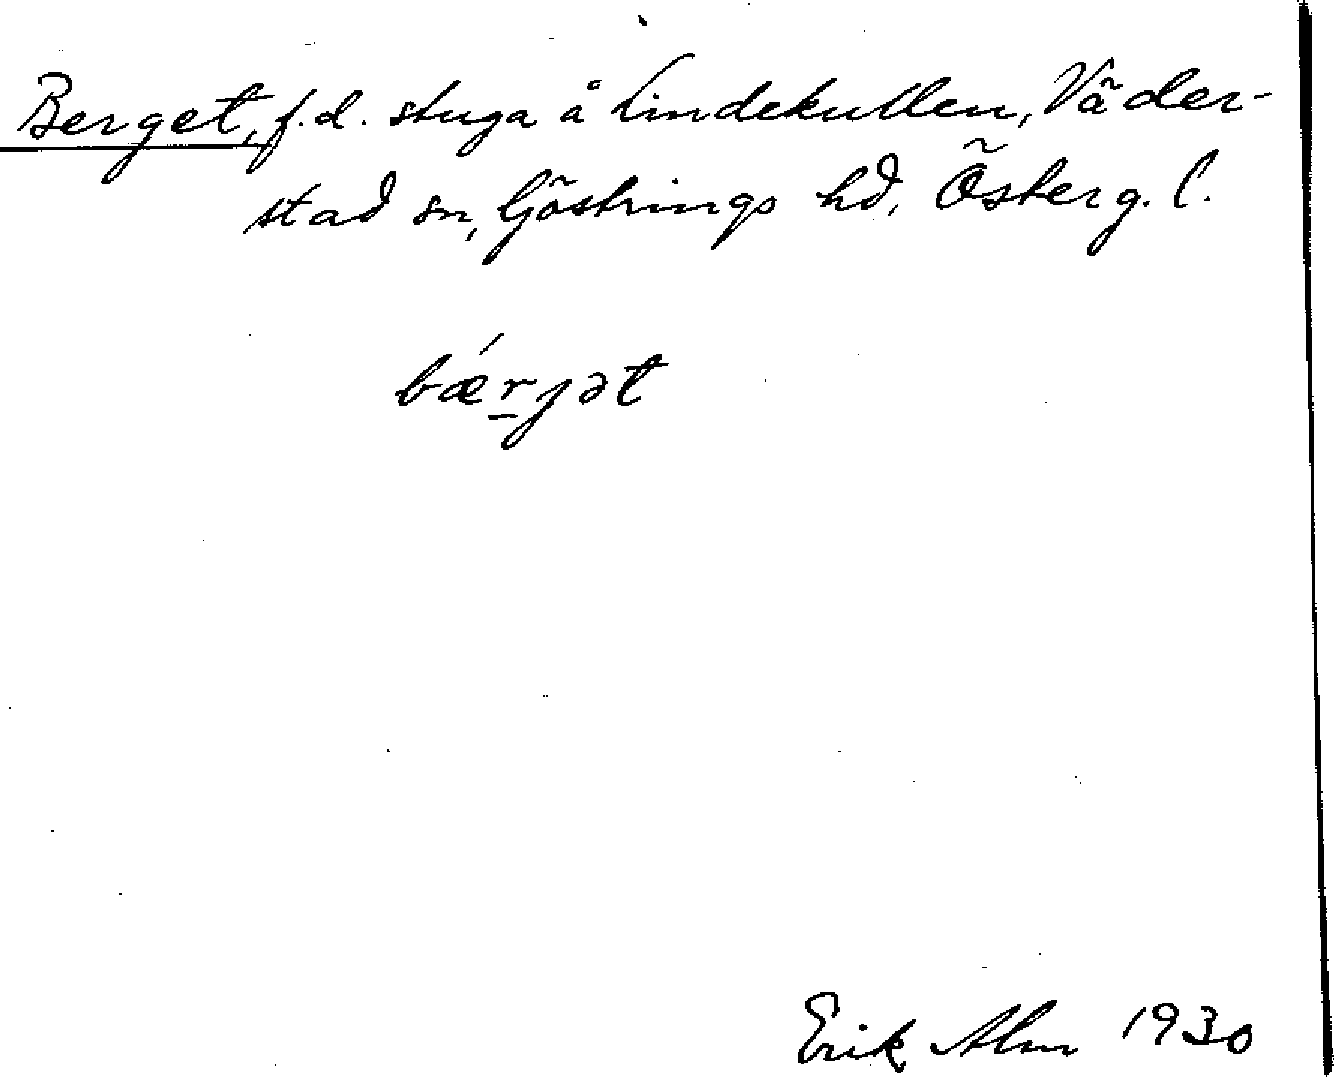 Berget, f.d. stuga å Lindekullen, Väder-
stad sn, Göstrings hd, Österg. l.
bǽr̠jət
Erik Alm 1930